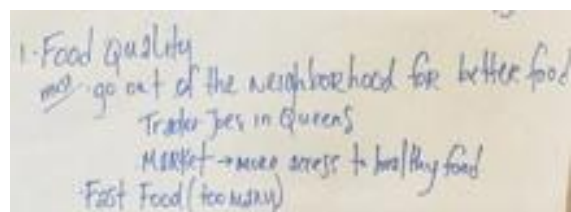 1. Food Quality
go out of the neighborhood for better food
Trader Joes in Queens
Market → more access to healthy food
Fast Food (too many)